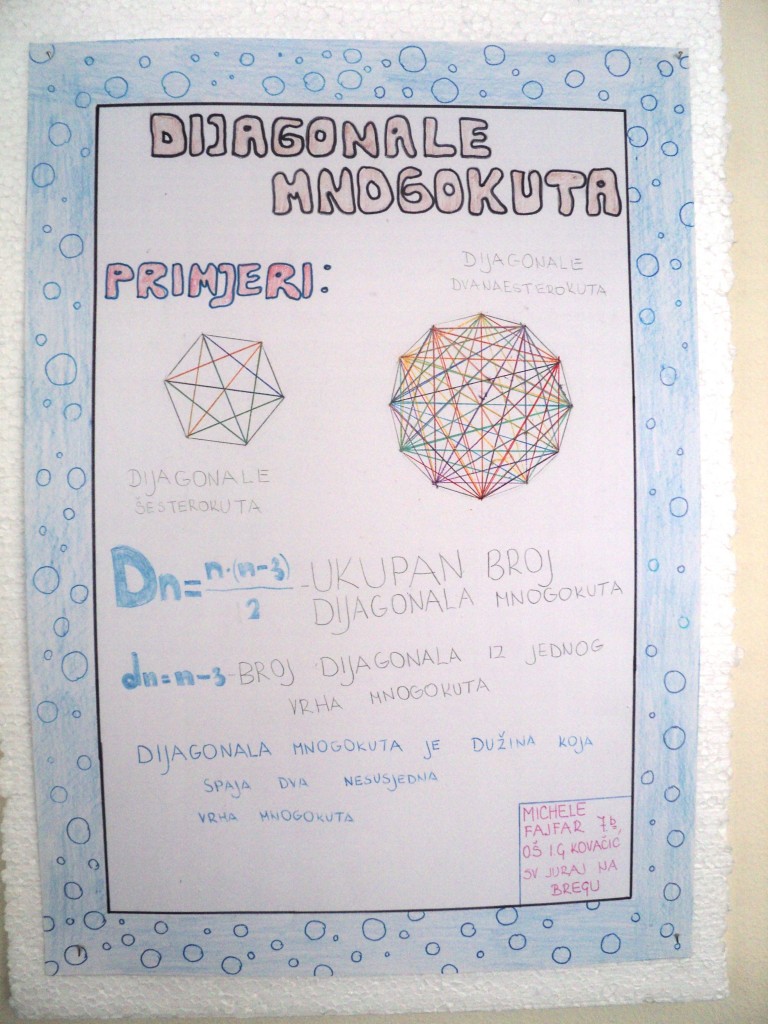 DIJAGONALE
MNOGOKUTA
PRIMJERI:
DIJAGONALE
DVANAESTEROKUTA
DIJAGONALE
ŠESTEROKUTA
Dn = n·(n-3)/2 - UKUPAN BROJ
DIJAGONALA MNOGOKUTA
dn = n-3 - BROJ DIJAGONALA IZ JEDNOG
VRHA MNOGOKUTA
DIJAGONALA MNOGOKUTA JE DUŽINA KOJA
SPAJA DVA NESUSJEDNA
VRHA MNOGOKUTA
MICHELE
FAJFAR 7.b
OŠ I.G KOVAČIĆ,
SV JURAJ NA
BREGU